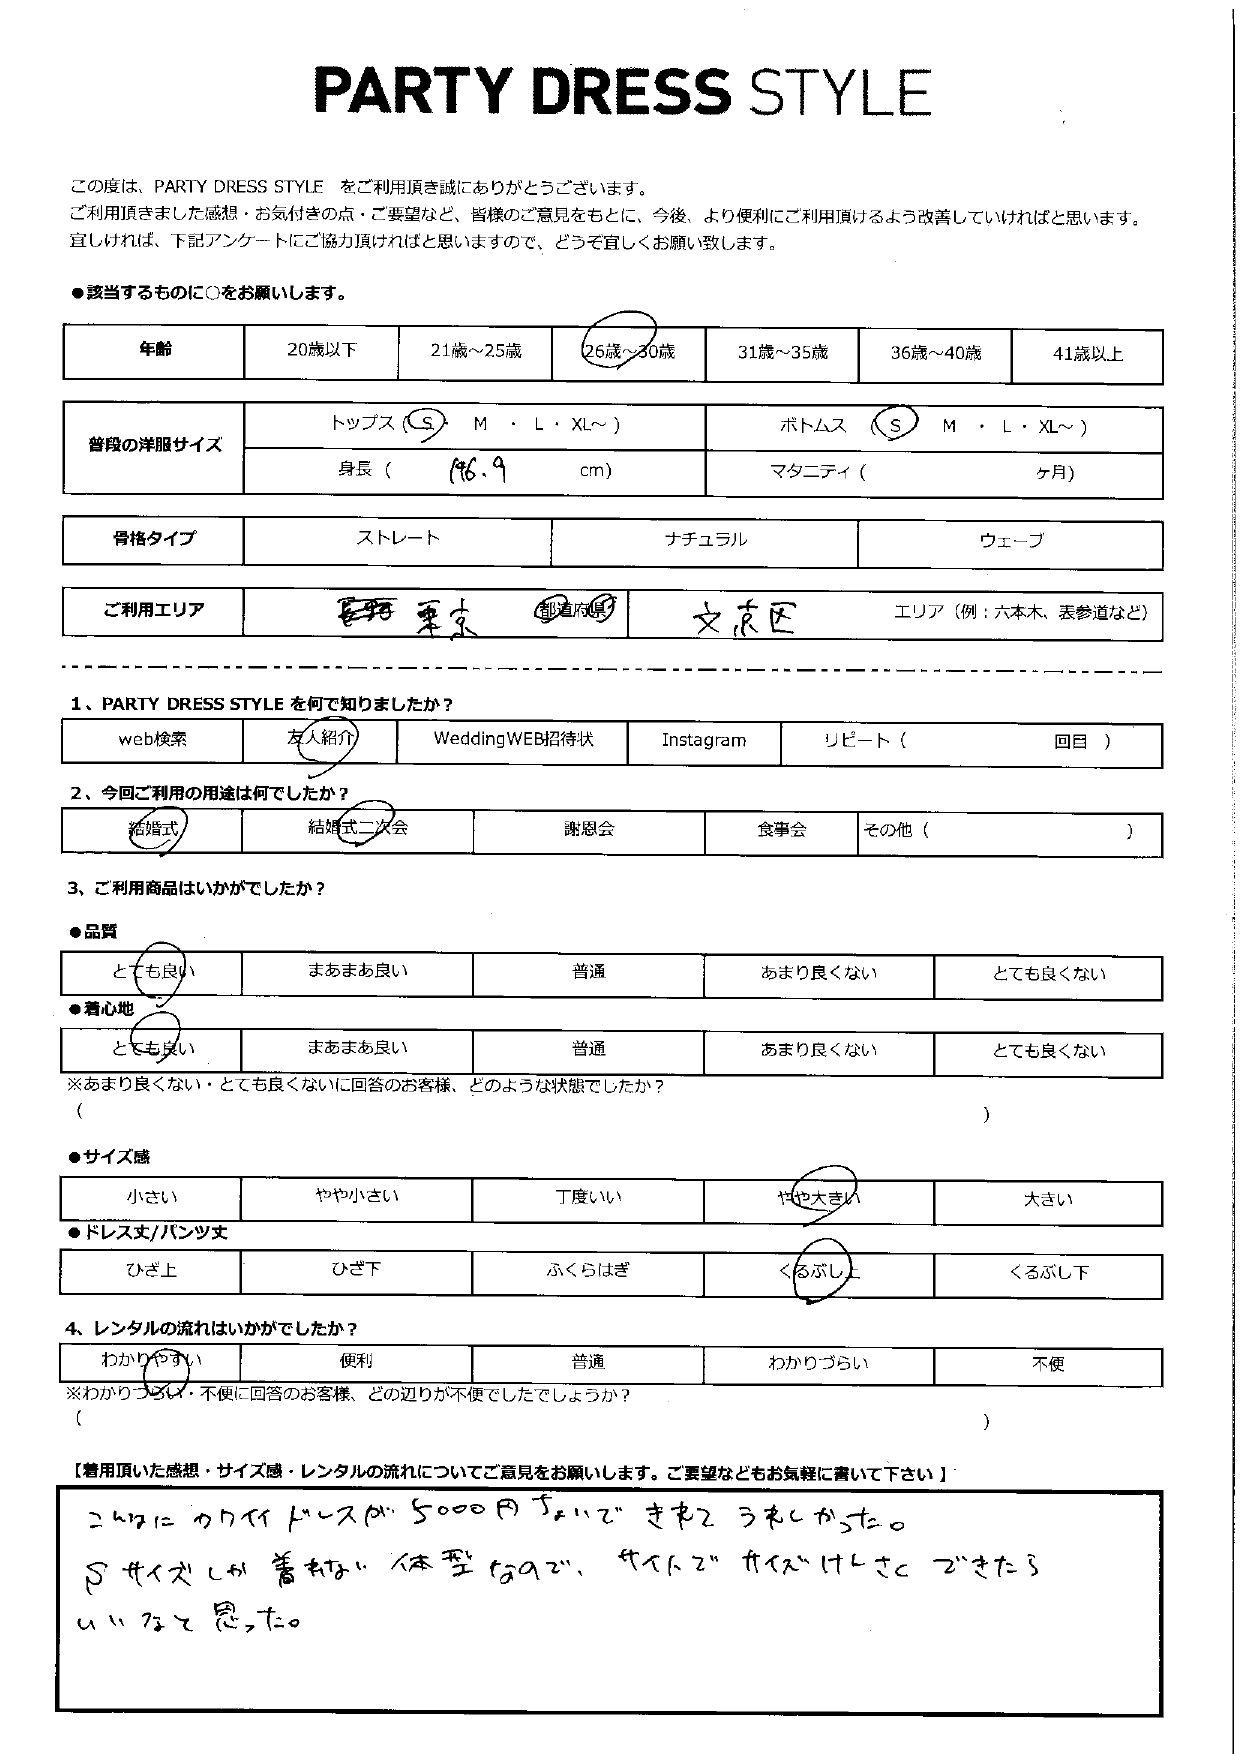 PARTY DRESS STYLE
この度は、PARTY DRESS STYLE をご利用頂き誠にありがとうございます。
ご利用頂きました感想・お気付きの点・ご要望など、皆様のご意見をもとに、今後、より便利にご利用頂けるよう改善していければと思います。
宜しければ、下記アンケートにご協力頂ければと思いますので、どうぞ宜しくお願い致します。
●該当するものに○をお願いします。
年齢 20歳以下 21歳～25歳 26歳～30歳 31歳～35歳 36歳～40歳 41歳以上
普段の洋服サイズ トップス (S・ M ・ L・ XL～ ) ボトムス (S M ・ L・ XL～ )
身長 ( 146.9 cm) マタニティ ( ヶ月)
骨格タイプ ストレート ナチュラル ウェーブ
ご利用エリア 東京 都道府県 文京区 エリア（例：六本木、表参道など）
1、PARTY DRESS STYLE を何で知りましたか？
web検索 友人紹介 WeddingWEB招待状 Instagram リピート ( 回目 )
2、今回ご利用の用途は何でしたか？
結婚式 結婚式二次会 謝恩会 食事会 その他 ( )
3、ご利用商品はいかがでしたか？
●品質
とても良い まあまあ良い 普通 あまり良くない とても良くない
●着心地
とても良い まあまあ良い 普通 あまり良くない とても良くない
※あまり良くない・とても良くないに回答のお客様、どのような状態でしたか？
( )
●サイズ感
小さい やや小さい 丁度いい やや大きい 大きい
●ドレス丈/パンツ丈
ひざ上 ひざ下 ふくらはぎ くるぶし上 くるぶし下
4、レンタルの流れはいかがでしたか？
わかりやすい 便利 普通 わかりづらい 不便
※わかりづらい・不便に回答のお客様、どの辺りが不便でしたでしょうか？
( )
【着用頂いた感想・サイズ感・レンタルの流れについてご意見をお願いします。ご要望などもお気軽に書いて下さい】
こんなに カワイイ ドレスが 5000円ちょいで きれて うれしかった。
Sサイズしか 着れない 体型なので、サイトで サイズけんさく できたら
いいなと思った。